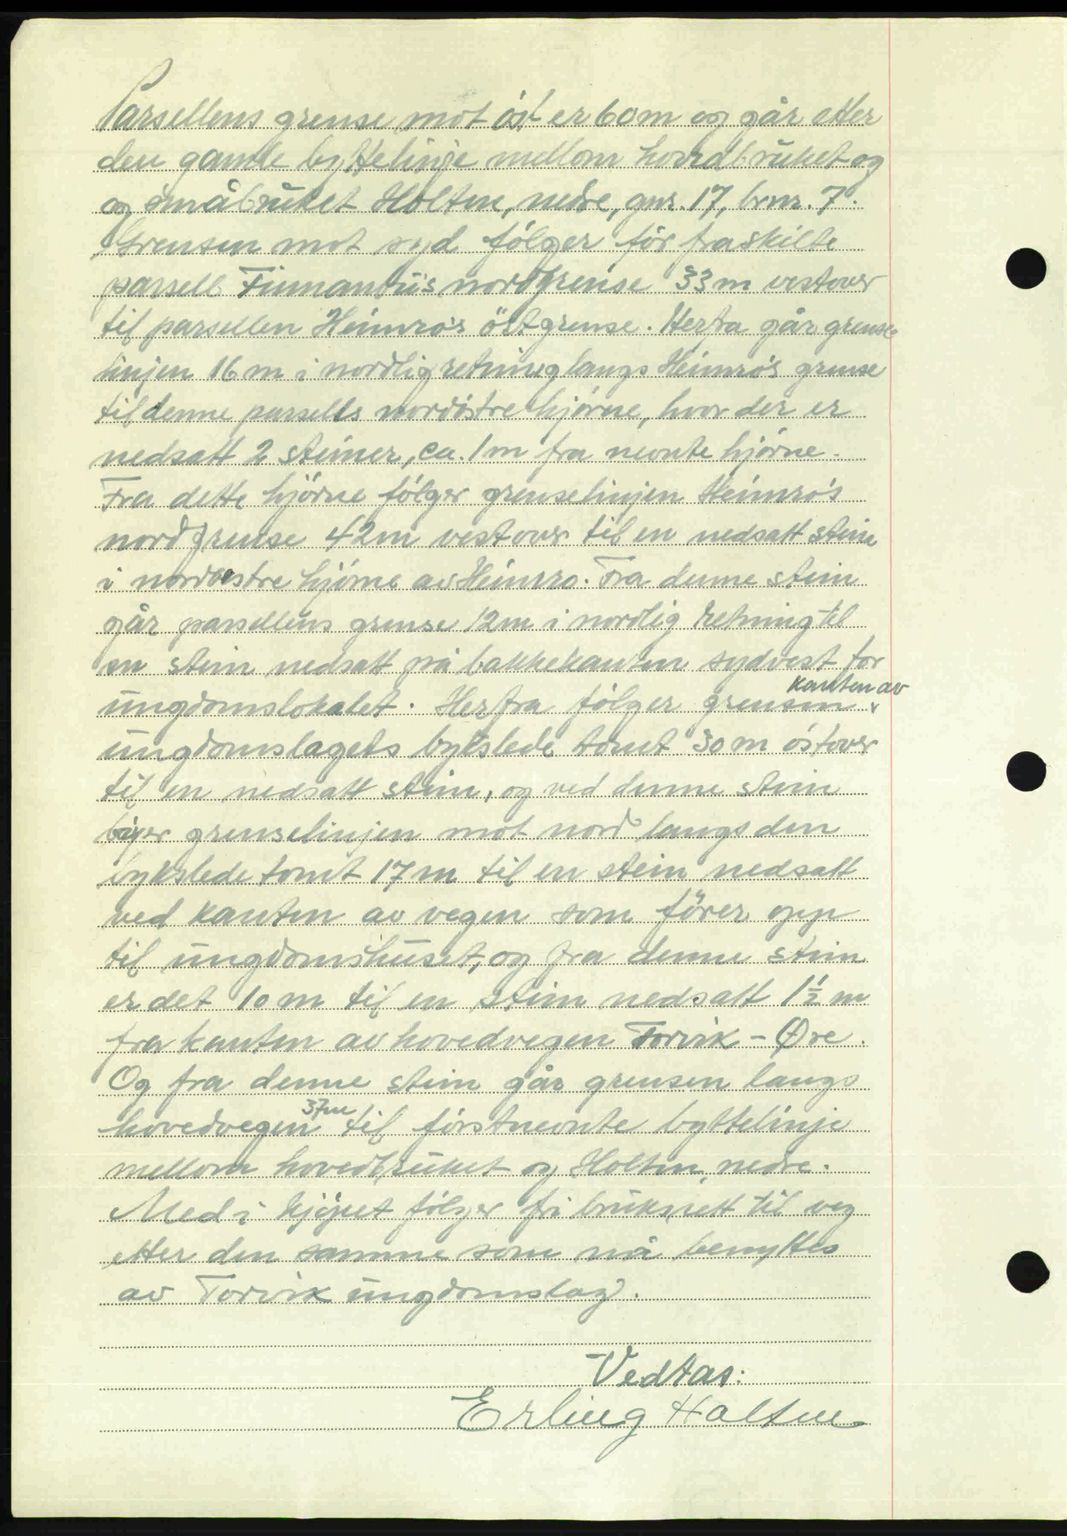 Parsellens grense mot öst er 60 m og går etter
den gamle byttelinje mellom hovedbruket og
og småbruket Holten, nedre, gnr. 17, brnr. 7.
Grensen mot syd følger før fraskilte
parsell Finmanbu's nordgrense 33 m vestover
til parsellen Heimro's östgrense. Herfra går grense
linjen 16 m i nordlig retning langs Heimro's grense
til denne parsells nordöstre hjörne, hvor der er
nedsatt 2 steiner, ca. 1 m fra nevnte hjörne.
Fra dette hjörne følger grenselinjen Heimro's
nordgrense 42 m vestover til en nedsatt stein
i nordvestre hjörne av Heimro. Fra denne stein
går parsellens grense 12 m i nordlig retning til
en stein nedsatt på bakkekanten sydvest for
ungdomslokalet. Herfra følger grensen kanten av
ungdomslagets bykslede tomt 30 m östover
til en nedsatt stein, og ved denne stein
böyer grenselinjen mot nord langs den
bykslede tomt 17 m til en stein nedsatt
ved kanten av vegen som förer opp
til ungdomshuset, og fra denne stein
er det 10 m til en stein nedsatt 1½ m
fra kanten av hovedvegen Torvik - Øre.
Og fra denne stein går grensen langs
hovedvegen 37m til förstnevnte byttelinje
mellom hovedbruket og Holten, nedre.
Med i kjöpet følger fri bruksrett til veg
etter den samme som nå benyttes
av Torvik ungdomslag.
Vedtas:
Erling Holten